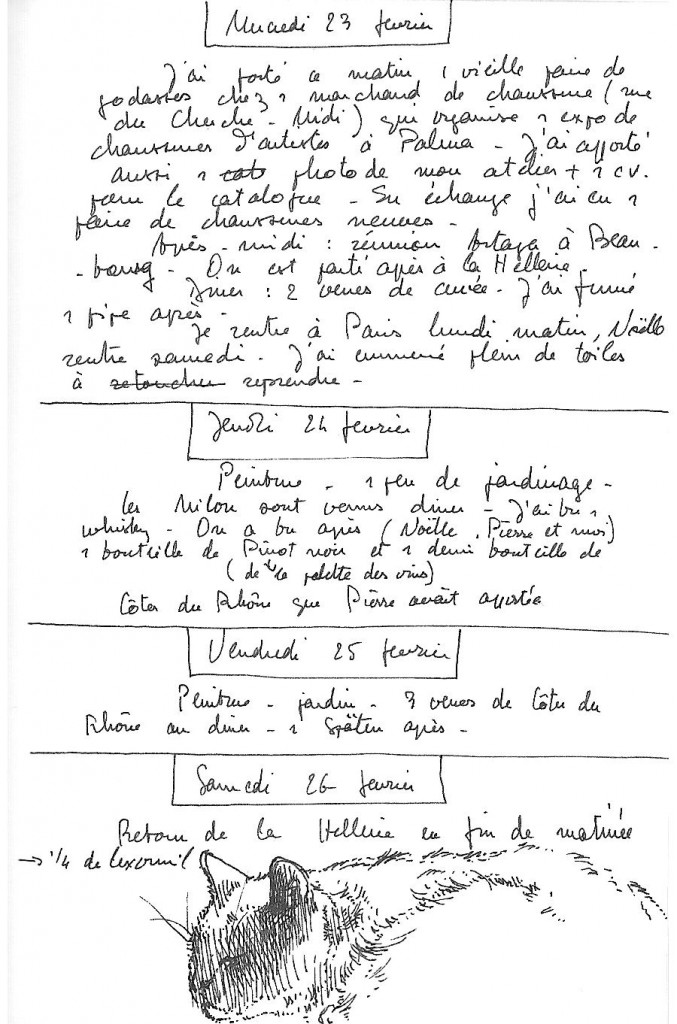 Mercredi 23 février
J'ai porté ce matin 1 vieille paire de
godasses chez 1 marchand de chaussure (rue
du Cherche-Midi) qui organise 1 expo de
chaussures d'artistes à Palma - J'ai apporté
aussi 1 photo de mon atelier + 1 cv.
pour le catalogue - En échange j'ai eu 1
paire de chaussures neuves -
Après-midi : réunion à Beau-
-bourg - On est parti après à la Hellerie.
Diner : 2 verres de cuvée - J'ai fumé
1 pipe après -
Je rentre à Paris lundi matin, Noëlle
rentre samedi - J'ai emmené plein de toiles
à retoucher reprendre -
Jeudi 24 février
Peinture - 1 peu de jardinage -
les Milou sont venus diner - J'ai bu 1
whisky - On a bu après (Noëlle, Pierre et moi)
1 bouteille de Pinot noir et 1 demi bouteille de
(de la palette des vins)
Côtes du Rhône que Pierre avait apportée
Vendredi 25 février
Peinture - jardin - 3 verres de Côtes du
Rhône au diner - 1 Späten après -
Samedi 26 février
Retour de la Hellerie en fin de matinée
→ 1/4 de lexomil